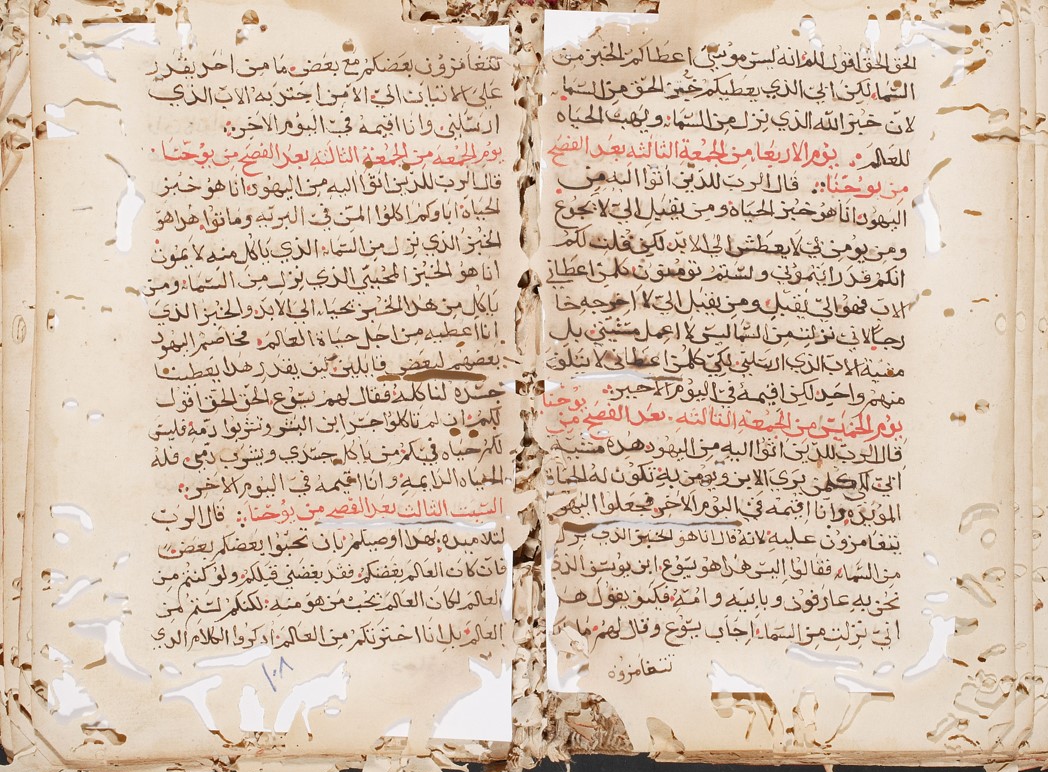 الحق الحق اقول لكم انه ليس موسى اعطاكم الخبز من
السماء لكن ابي الذي يعطيكم خبز الحق من السما
لان خبز الله الذي نزل من السماء ويهب الحياه
للعالم يوم الاربعا من الجمعة الثالثه بعد الفصح
من يوحنا قال الرب للذين اتوا اليه من
اليهود انا هو خبز الحياه ومن يقبل اليّ لا يجوع
ومن يومن بي لا يعطش الى الابد لكن قلت لكم
انكم قد رايتموني ولستم تومنون كلمن اعطاني
الاب فهو اليّ يقبل ومن يقبل اليّ لا اخرجه خا
رجاً لاني نزلت من السما ليس لا اعمل مشيتي بل
مشية الاب الذي ارسلني لكي كلمن اعطاني لا يتلف
منهم واحد لكن اقيمه في اليوم الاخير يوحنا
يوم الخميس من الجمعة الثالثه بعد الفصح من
قال الرب للذين اتوا اليه من اليهود هذه مشية
ابي لكي كلمن يرى الابن ويومن به تكون له الحياة
المؤبده وانا اقيمه في اليوم الاخر فجعلوا اليهود
يتغامزون عليه لانه قال انا هو الخبز الذي نزل
من السماء فقالوا اليس هذا هو يسوع ابن يوسف الذي
نحن به عارفون وبابيه وامه فكيف يقول هذا
انيّ نزلت من السماء اجاب يسوع وقال لهم
تتغامزوه
تتغامزون بعضكم مع بعض ما من احد يقدر
على الاتيان اليّ الا من اجتربه الاب الذي
ارسلني وانا اقيمه في اليوم الاخر
يوم الجمعه من الجمعة الثالثه بعد الفصح من يوحنا
قال الرب للذين اتوا اليه من اليهود انا هو خبز
الحياه اباوكم اكلوا المن في البريه وماتوا هذا هو
الخبز الذي نزل من السماء الذي ياكل منه لا يموت
انا هو الخبز المحيي الذي نزل من السماء ومن
ياكل من هذا الخبز يحياء الى الابد والخبز الذي
انا اعطيه من اجل حياة العالم فخاصم اليهود
بعضهم لبعض قايلين كيف يقدر هذا يعطينا
جسده لناكله فقال لهم يسوع الحق الحق اقول
لكم ان لم تاكلوا جسد ابن البشر وتشربوا دمه فليس
لكم حياه فيكم من ياكل جسدي ويشرب دمي فله
الحياه الدايمه وانا اقيمه في اليوم الاخر
السبت الثالث بعد الفصح من يوحنا قال الرب
لتلاميذه بهذا اوصيكم بان تحبوا بعضكم بعض
فان كان العالم يغضكم فقد بغضني قبلكم ولو كنتم من
العالم لكان العالم يحب من هو منه لكنكم لستم من
العالم بل انا اخترتكم من العالم اذكروا الكلام الذي
١٠٨